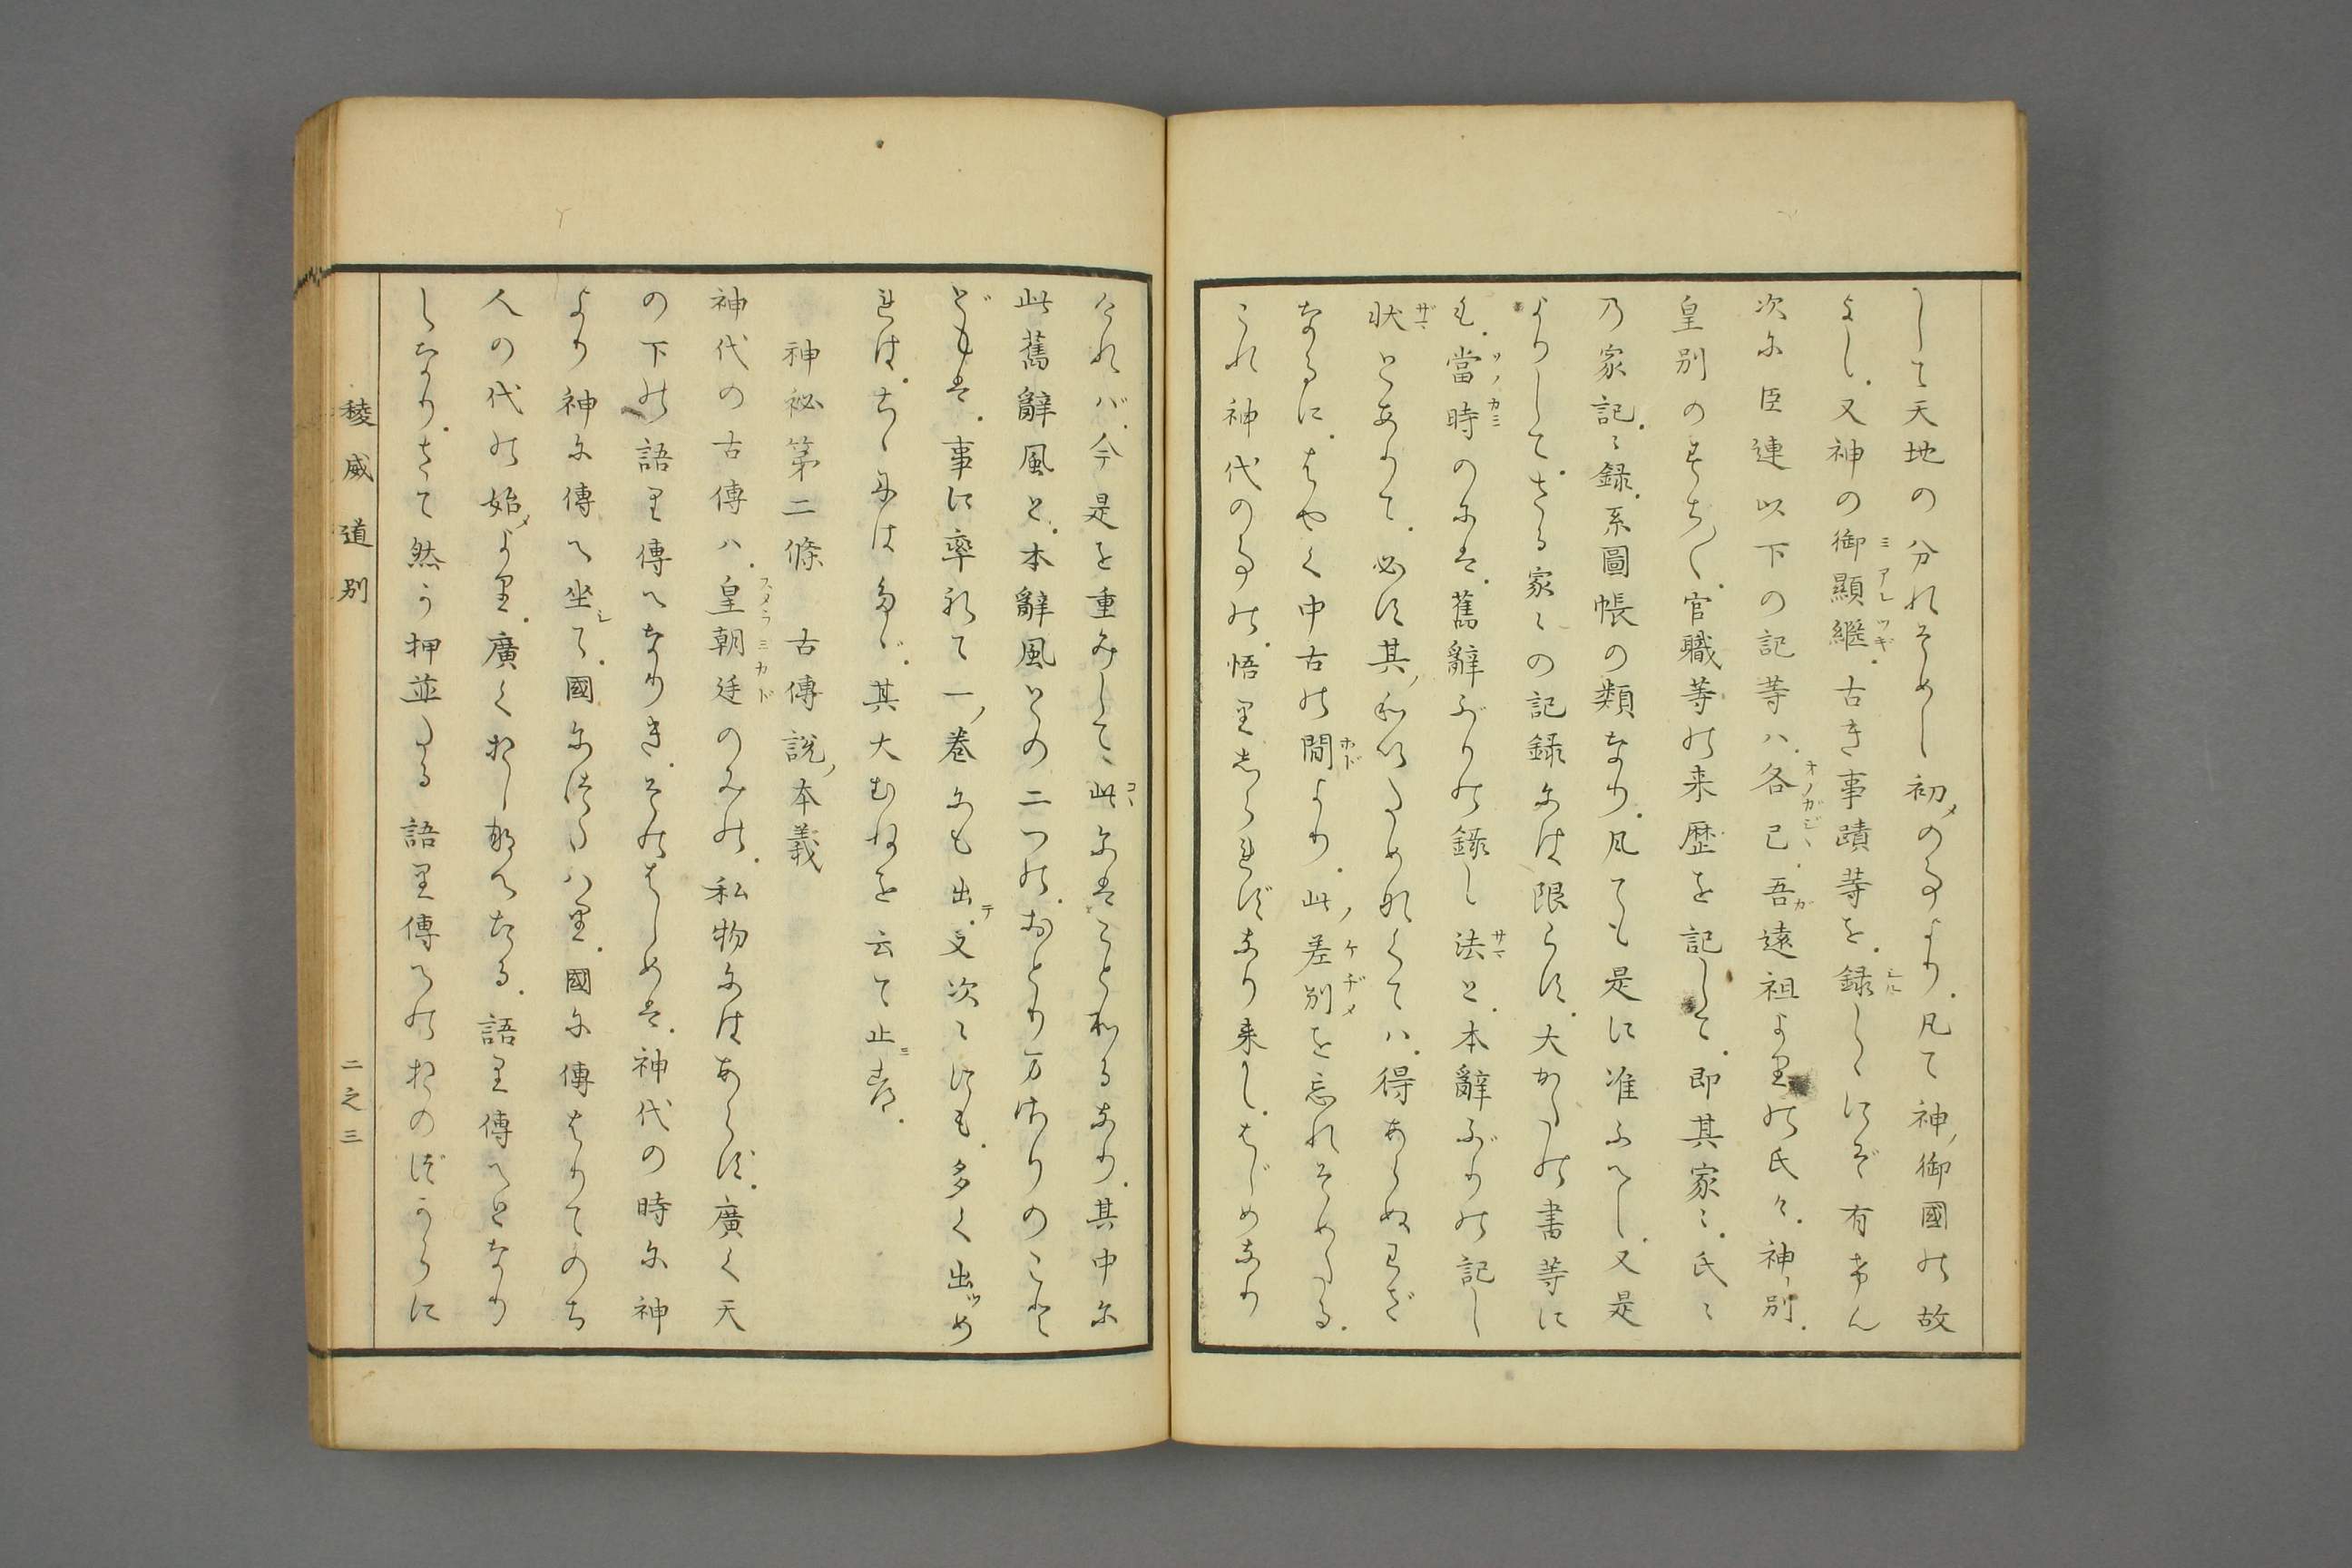 して天地の分れそめし初メの事より。凡て神ノ御國の故
よし。又神の御顯繼。古き事蹟等を。録しゝにぞ有けん
次に臣連以下の記等ハ。各己。吾ガ遠祖よりの氏々。神ノ別。
皇別のすぢ〳〵。官職等の来歴を記して。即其家ミ。氏ミ
乃家記ミ録。系圖帳の類なり。凡ても是に准ふへし。又是
よりして。さる家ミの記録には限らず。大かたの書等に
も。當時のには。舊辭ぶりの錄し法と。本辭ぶりの記し
状とありて。必ず其ノ
なるに。はやく中古の間より。此ノ差別を忘れそめたる。
これ神代の事の。悟りしられずなり来し。はじめなり
けれバ。今是を重みして。此にはことわるなり。其中に
此舊辭風と。本辭風との二つの。おとりまさりのこと
どもは。事に率れて一ノ巻にも出テ。又次ミにも。多く出ツめ
れば。こゝには
神祕第二條　古傳說ノ本義
神代の古傳ハ。皇朝廷のみの。私物にはあらず。廣く天
の下の語り傳へなりき。そのはしめは。神代の時に神
より神に傳へ坐シて。國に傳はりてのち
人の代の始メより。廣くおし
しなり。さて然か押並たる語り傳への
稜威道別
二之三